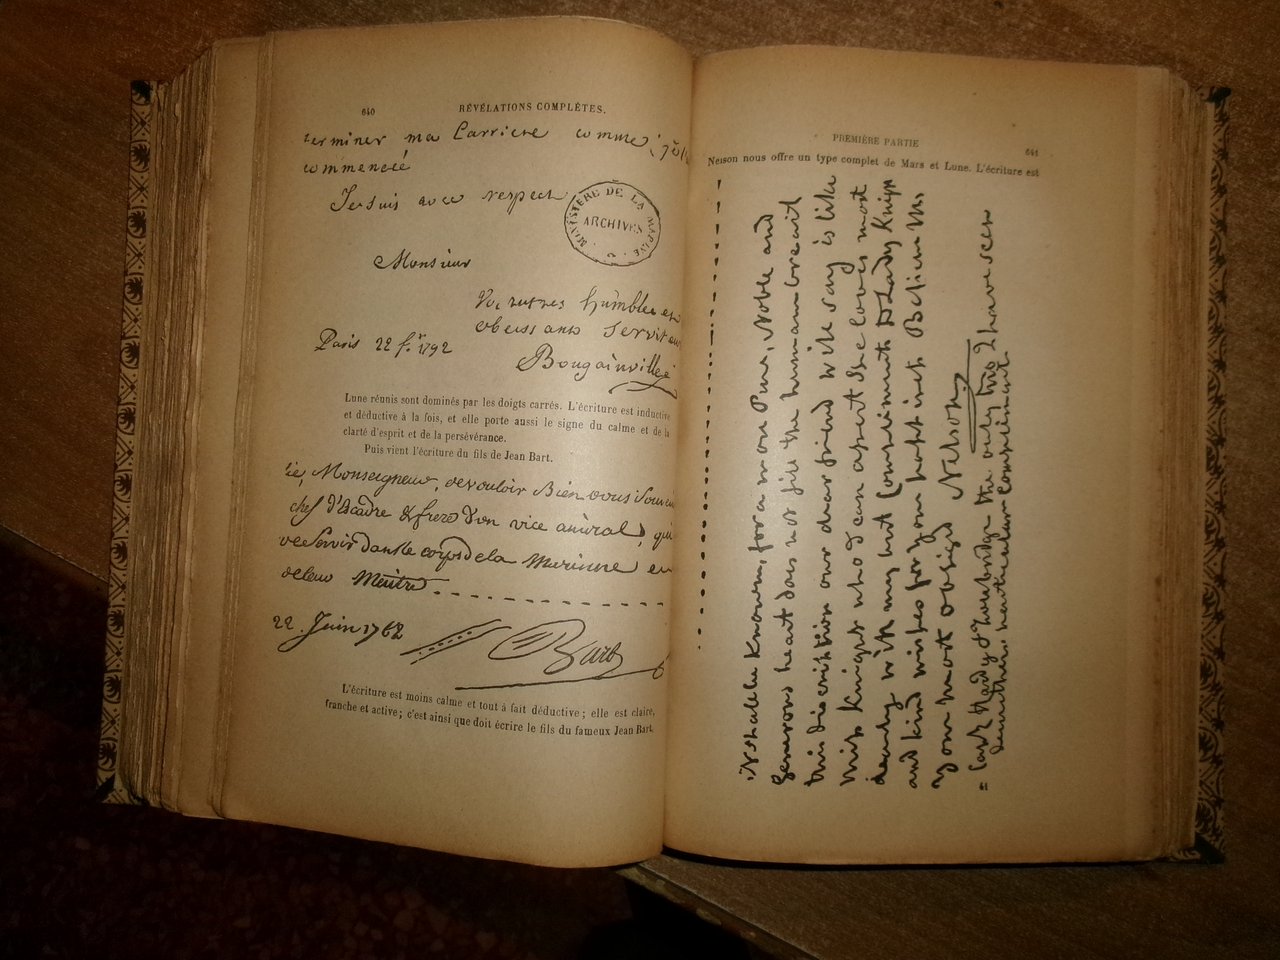 640
RÉVÉLATIONS COMPLÈTES.
terminer ma Carriere comme
commencé
Je suis avec respect
MINISTÈRE DE LA MARINE
ARCHIVES
Monsieur
humble et
obeissants Serviteur
Paris 22 f.er 1792
Bougainville
Lune réunis sont dominés par les doigts carrés. L'écriture est inductive
et déductive à la fois, et elle porte aussi le signe du calme et de la
clarté d'esprit et de la persévérance.
Puis vient l'écriture du fils de Jean Bart.
Monseigneur, de vouloir Bien vous Souvenir
chef d'Escadre & frere d'un vice amiral, qui
Servir dans le corps de la Marinne en
Maitre
22. Juin 1762
Bart
L'écriture est moins calme et tout à fait déductive ; elle est claire,
franche et active ; c'est ainsi que doit écrire le fils du fameux Jean Bart.
PREMIÈRE PARTIE
641
Nelson nous offre un type complet de Mars et Lune. L'écriture est
shall be known, for a more Pure, Noble and
generous heart does not fill the human breast
this discription our dear friend will say is like
Miss Knight who I can assert she loves most
dearly with my best Compliments to Lady Knight
and kind wishes for your happiness Believe me
your most obliged Nelson
Capt Hardy & Troubridge the only two I have seen
desire their particular Compliments
41